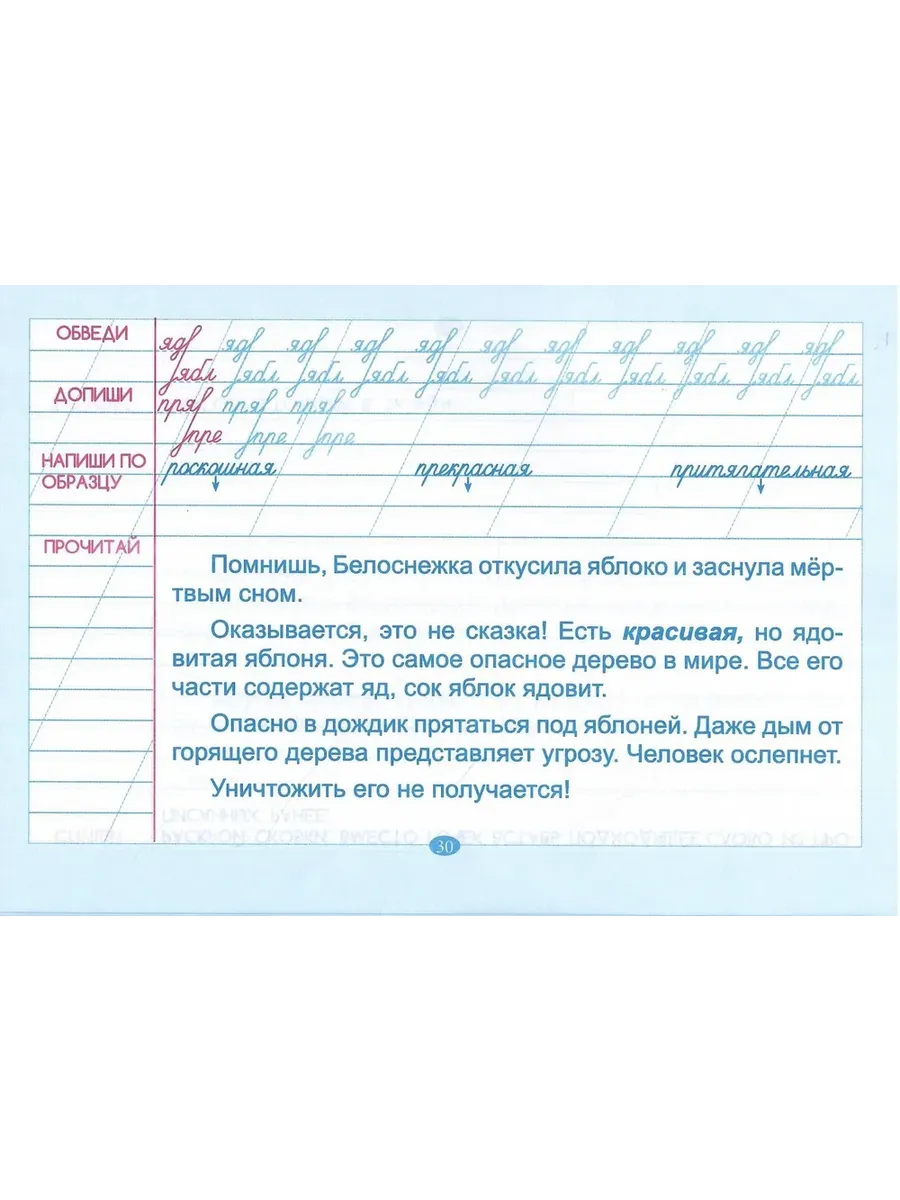 ОБВЕДИ
яд яд яд яд яд яд яд яд яд яд яд
ябл ябл ябл ябл ябл ябл ябл ябл ябл ябл ябл
ДОПИШИ
пря пря пря
пре пре пре
НАПИШИ ПО
ОБРАЗЦУ
роскошная прекрасная притягательная
ПРОЧИТАЙ
Помнишь, Белоснежка откусила яблоко и заснула мёр-
твым сном.
Оказывается, это не сказка! Есть красивая, но ядо-
витая яблоня. Это самое опасное дерево в мире. Все его
части содержат яд, сок яблок ядовит.
Опасно в дождик прятаться под яблоней. Даже дым от
горящего дерева представляет угрозу. Человек ослепнет.
Уничтожить его не получается!
30